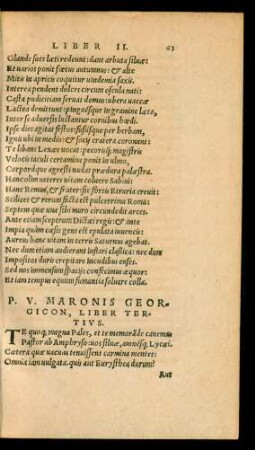 LIBER II. 63
Glande sues læti redeunt: dant arbuta siluæ:
Et uarios ponit fœtus autumnus: & alte
Mitis in apricis coquitur uindemia saxis.
Interea pendent dulces circum oscula nati:
Casta pudicitiam seruat domus: ubera uaccæ
Lactea demittunt: pinguesque in gramine læto,
Inter se aduersis luctantur cornibus hœdi.
Ipse dies agitat festos: fususque per herbam,
Ignis ubi in medio: & socij cratera coronant:
Te libans Lenæe uocat: pecorisque magistris
Velocis iaculi certamina ponit in ulmo,
Corporaque agresti nudat prædura palæstra.
Hanc olim ueteres uitam coluere Sabini:
Hanc Remus, & frater: sic fortis Etruria creuit:
Scilicet & rerum facta est pulcerrima Roma:
Septem quæ una sibi muro circundedit arces.
Ante etiam sceptrum Dictæi regis: & ante
Impia quàm cæsis gens est epulata iuuencis:
Aureus hanc uitam in terris Saturnus agebat.
Nec dum etiam audierant inflari classica: nec dum
Impositos duris crepitare incudibus enses.
Sed nos immensum spacijs confecimus æquor:
Et iam tempus equum fumantia soluere colla.
P. V. MARONIS GEOR-
GICON, LIBER TER-
TIVS.
TE quoq; magna Pales, et te memorãde canemus
Pastor ab Amphryso: uos siluæ, amnesq; Lycæi.
Cætera quæ uacuas tenuissent carmina mentes:
Omnia iam uulgata. quis aut Eurysthea durum?
Aut